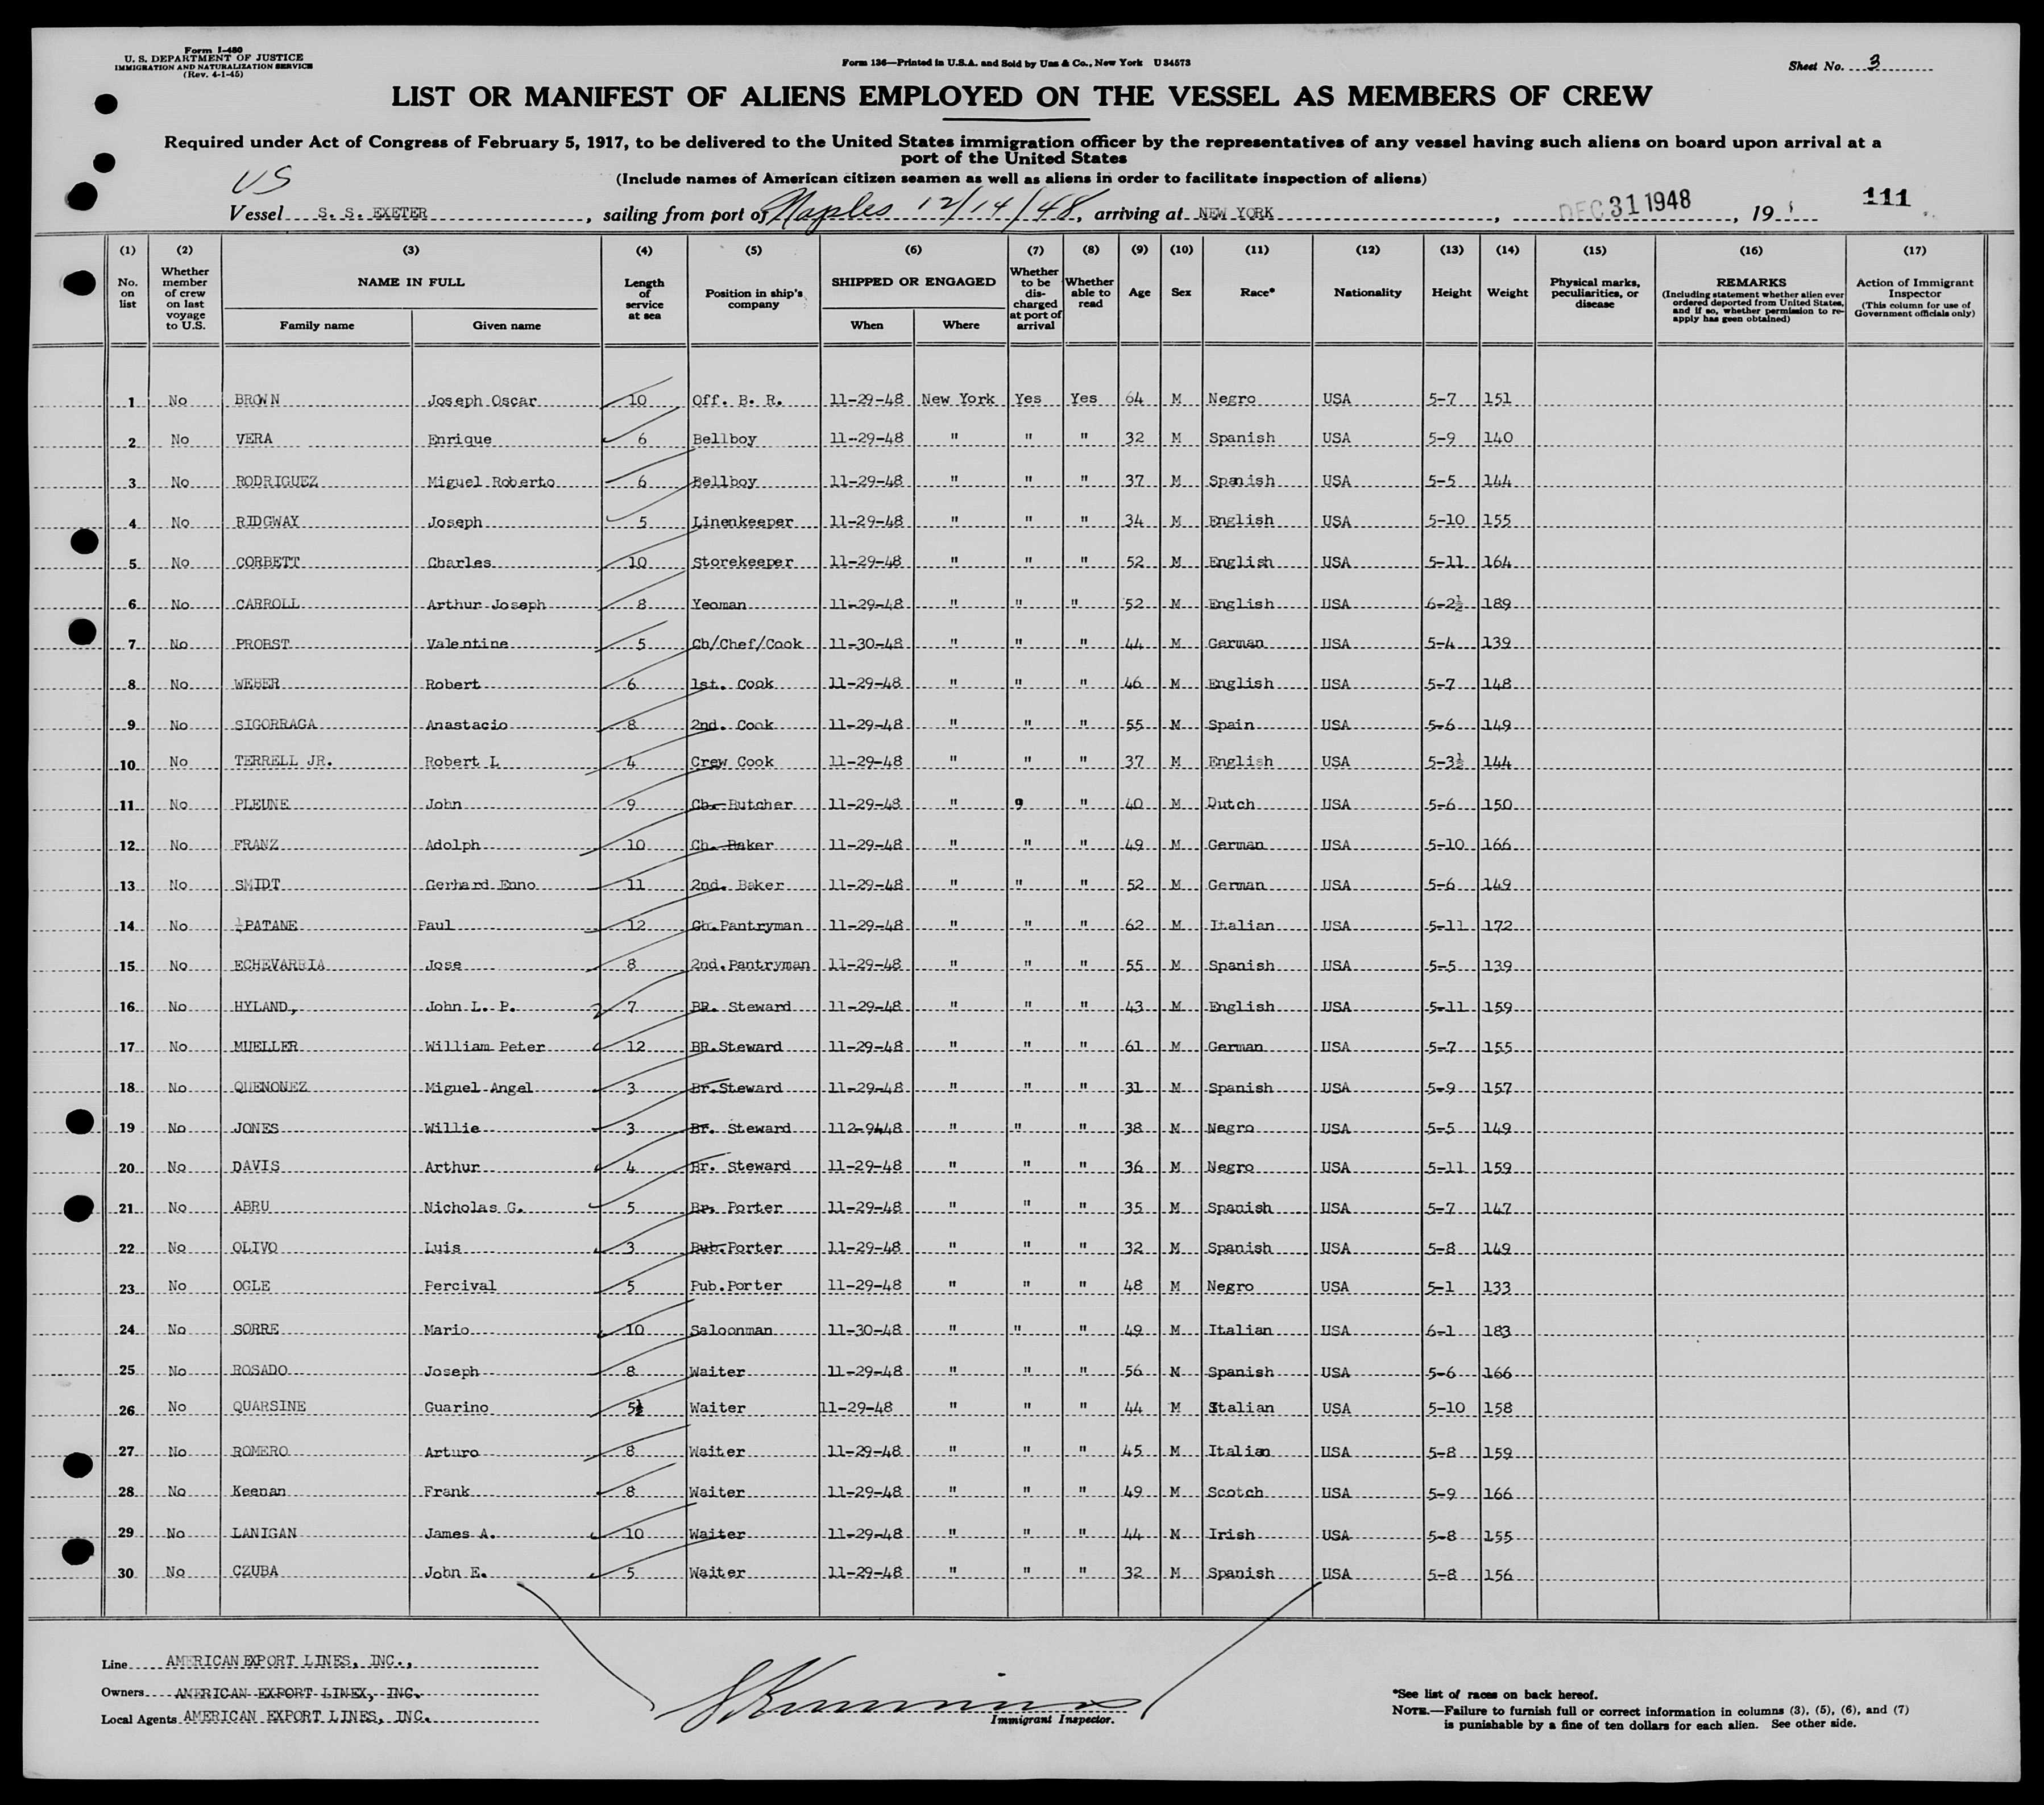 Form I-480
U. S. DEPARTMENT OF JUSTICE
IMMIGRATION AND NATURALIZATION SERVICE
(Rev. 4-1-45)
Form 136—Printed in U.S.A. and Sold by Unz & Co., New York U 34573
Sheet No. 3
LIST OR MANIFEST OF ALIENS EMPLOYED ON THE VESSEL AS MEMBERS OF CREW
Required under Act of Congress of February 5, 1917, to be delivered to the United States immigration officer by the representatives of any vessel having such aliens on board upon arrival at a
port of the United States
(Include names of American citizen seamen as well as aliens in order to facilitate inspection of aliens)
US
Vessel S. S. EXETER, sailing from port of Naples 12/14/48, arriving at NEW YORK, DEC 31 1948, 19 111
(1) (2) (3) (4) (5) (6) (7) (8) (9) (10) (11) (12) (13) (14) (15) (16) (17)
No. on list
Whether member of crew on last voyage to U.S.
NAME IN FULL
Family name
Given name
Length of service at sea
Position in ship's company
SHIPPED OR ENGAGED
When
Where
Whether to be discharged at port of arrival
Whether able to read
Age
Sex
Race*
Nationality
Height
Weight
Physical marks, peculiarities, or disease
REMARKS
(Including statement whether alien ever ordered deported from United States, and if so, whether permission to reapply has geen obtained)
Action of Immigrant Inspector
(This column for use of Government officials only)
1 No BROWN Joseph Oscar 10 Off. B. R. 11-29-48 New York Yes Yes 64 M Negro USA 5-7 151
2 No VERA Enrique 6 Bellboy 11-29-48 " " " 32 M Spanish USA 5-9 140
3 No RODRIGUEZ Miguel Roberto 6 Bellboy 11-29-48 " " " 37 M Spanish USA 5-5 144
4 No RIDGWAY Joseph 5 Linenkeeper 11-29-48 " " " 34 M English USA 5-10 155
5 No CORBETT Charles 10 Storekeeper 11-29-48 " " " 52 M English USA 5-11 164
6 No CARROLL Arthur Joseph 8 Yeoman 11-29-48 " " " 52 M English USA 6-2½ 189
7 No PROBST Valentine 5 Ch/Chef/Cook 11-30-48 " " " 44 M German USA 5-4 139
8 No WEBER Robert 6 1st. Cook 11-29-48 " " " 46 M English USA 5-7 148
9 No SIGORRAGA Anastacio 8 2nd. Cook 11-29-48 " " " 55 M Spain USA 5-6 149
10 No TERRELL JR. Robert L 4 Crew Cook 11-29-48 " " " 37 M English USA 5-3½ 144
11 No PLEUNE John 9 Ch. Butcher 11-29-48 " 9 " 40 M Dutch USA 5-6 150
12 No FRANZ Adolph 10 Ch. Baker 11-29-48 " " " 49 M German USA 5-10 166
13 No SMIDT Gerhard Enno 11 2nd. Baker 11-29-48 " " " 52 M German USA 5-6 149
14 No PATANE Paul 12 Ch.Pantryman 11-29-48 " " " 62 M Italian USA 5-11 172
15 No ECHEVARRIA Jose 8 2nd.Pantryman 11-29-48 " " " 55 M Spanish USA 5-5 139
16 No HYLAND, John L. P. 7 BR. Steward 11-29-48 " " " 43 M English USA 5-11 159
17 No MUELLER William Peter 12 BR.Steward 11-29-48 " " " 61 M German USA 5-7 155
18 No QUENONEZ Miguel Angel 3 Br.Steward 11-29-48 " " " 31 M Spanish USA 5-9 157
19 No JONES Willie 3 Br. Steward 112-9448 " " " 38 M Negro USA 5-5 149
20 No DAVIS Arthur 4 Br. Steward 11-29-48 " " " 36 M Negro USA 5-11 159
21 No ABRU Nicholas G. 5 Br. Porter 11-29-48 " " " 35 M Spanish USA 5-7 147
22 No OLIVO Luis 3 Bub.Porter 11-29-48 " " " 32 M Spanish USA 5-8 149
23 No OGLE Percival 5 Pub.Porter 11-29-48 " " " 48 M Negro USA 5-1 133
24 No SORRE Mario 10 Saloonman 11-30-48 " " " 49 M Italian USA 6-1 183
25 No ROSADO Joseph 8 Waiter 11-29-48 " " " 56 M Spanish USA 5-6 166
26 No QUARSINE Guarino 5½ Waiter 11-29-48 " " " 44 M Italian USA 5-10 158
27 No ROMERO Arturo 8 Waiter 11-29-48 " " " 45 M Italian USA 5-8 159
28 No Keenan Frank 8 Waiter 11-29-48 " " " 49 M Scotch USA 5-9 166
29 No LANIGAN James A. 10 Waiter 11-29-48 " " " 44 M Irish USA 5-8 155
30 No CZUBA John E. 5 Waiter 11-29-48 " " " 32 M Spanish USA 5-8 156
Line AMERICAN EXPORT LINES, INC.,
Owners AMERICAN EXPORT LINEX, INC.
Local Agents AMERICAN EXPORT LINES, INC.
Immigrant Inspector.
*See list of races on back hereof.
NOTE.—Failure to furnish full or correct information in columns (3), (5), (6), and (7)
is punishable by a fine of ten dollars for each alien. See other side.